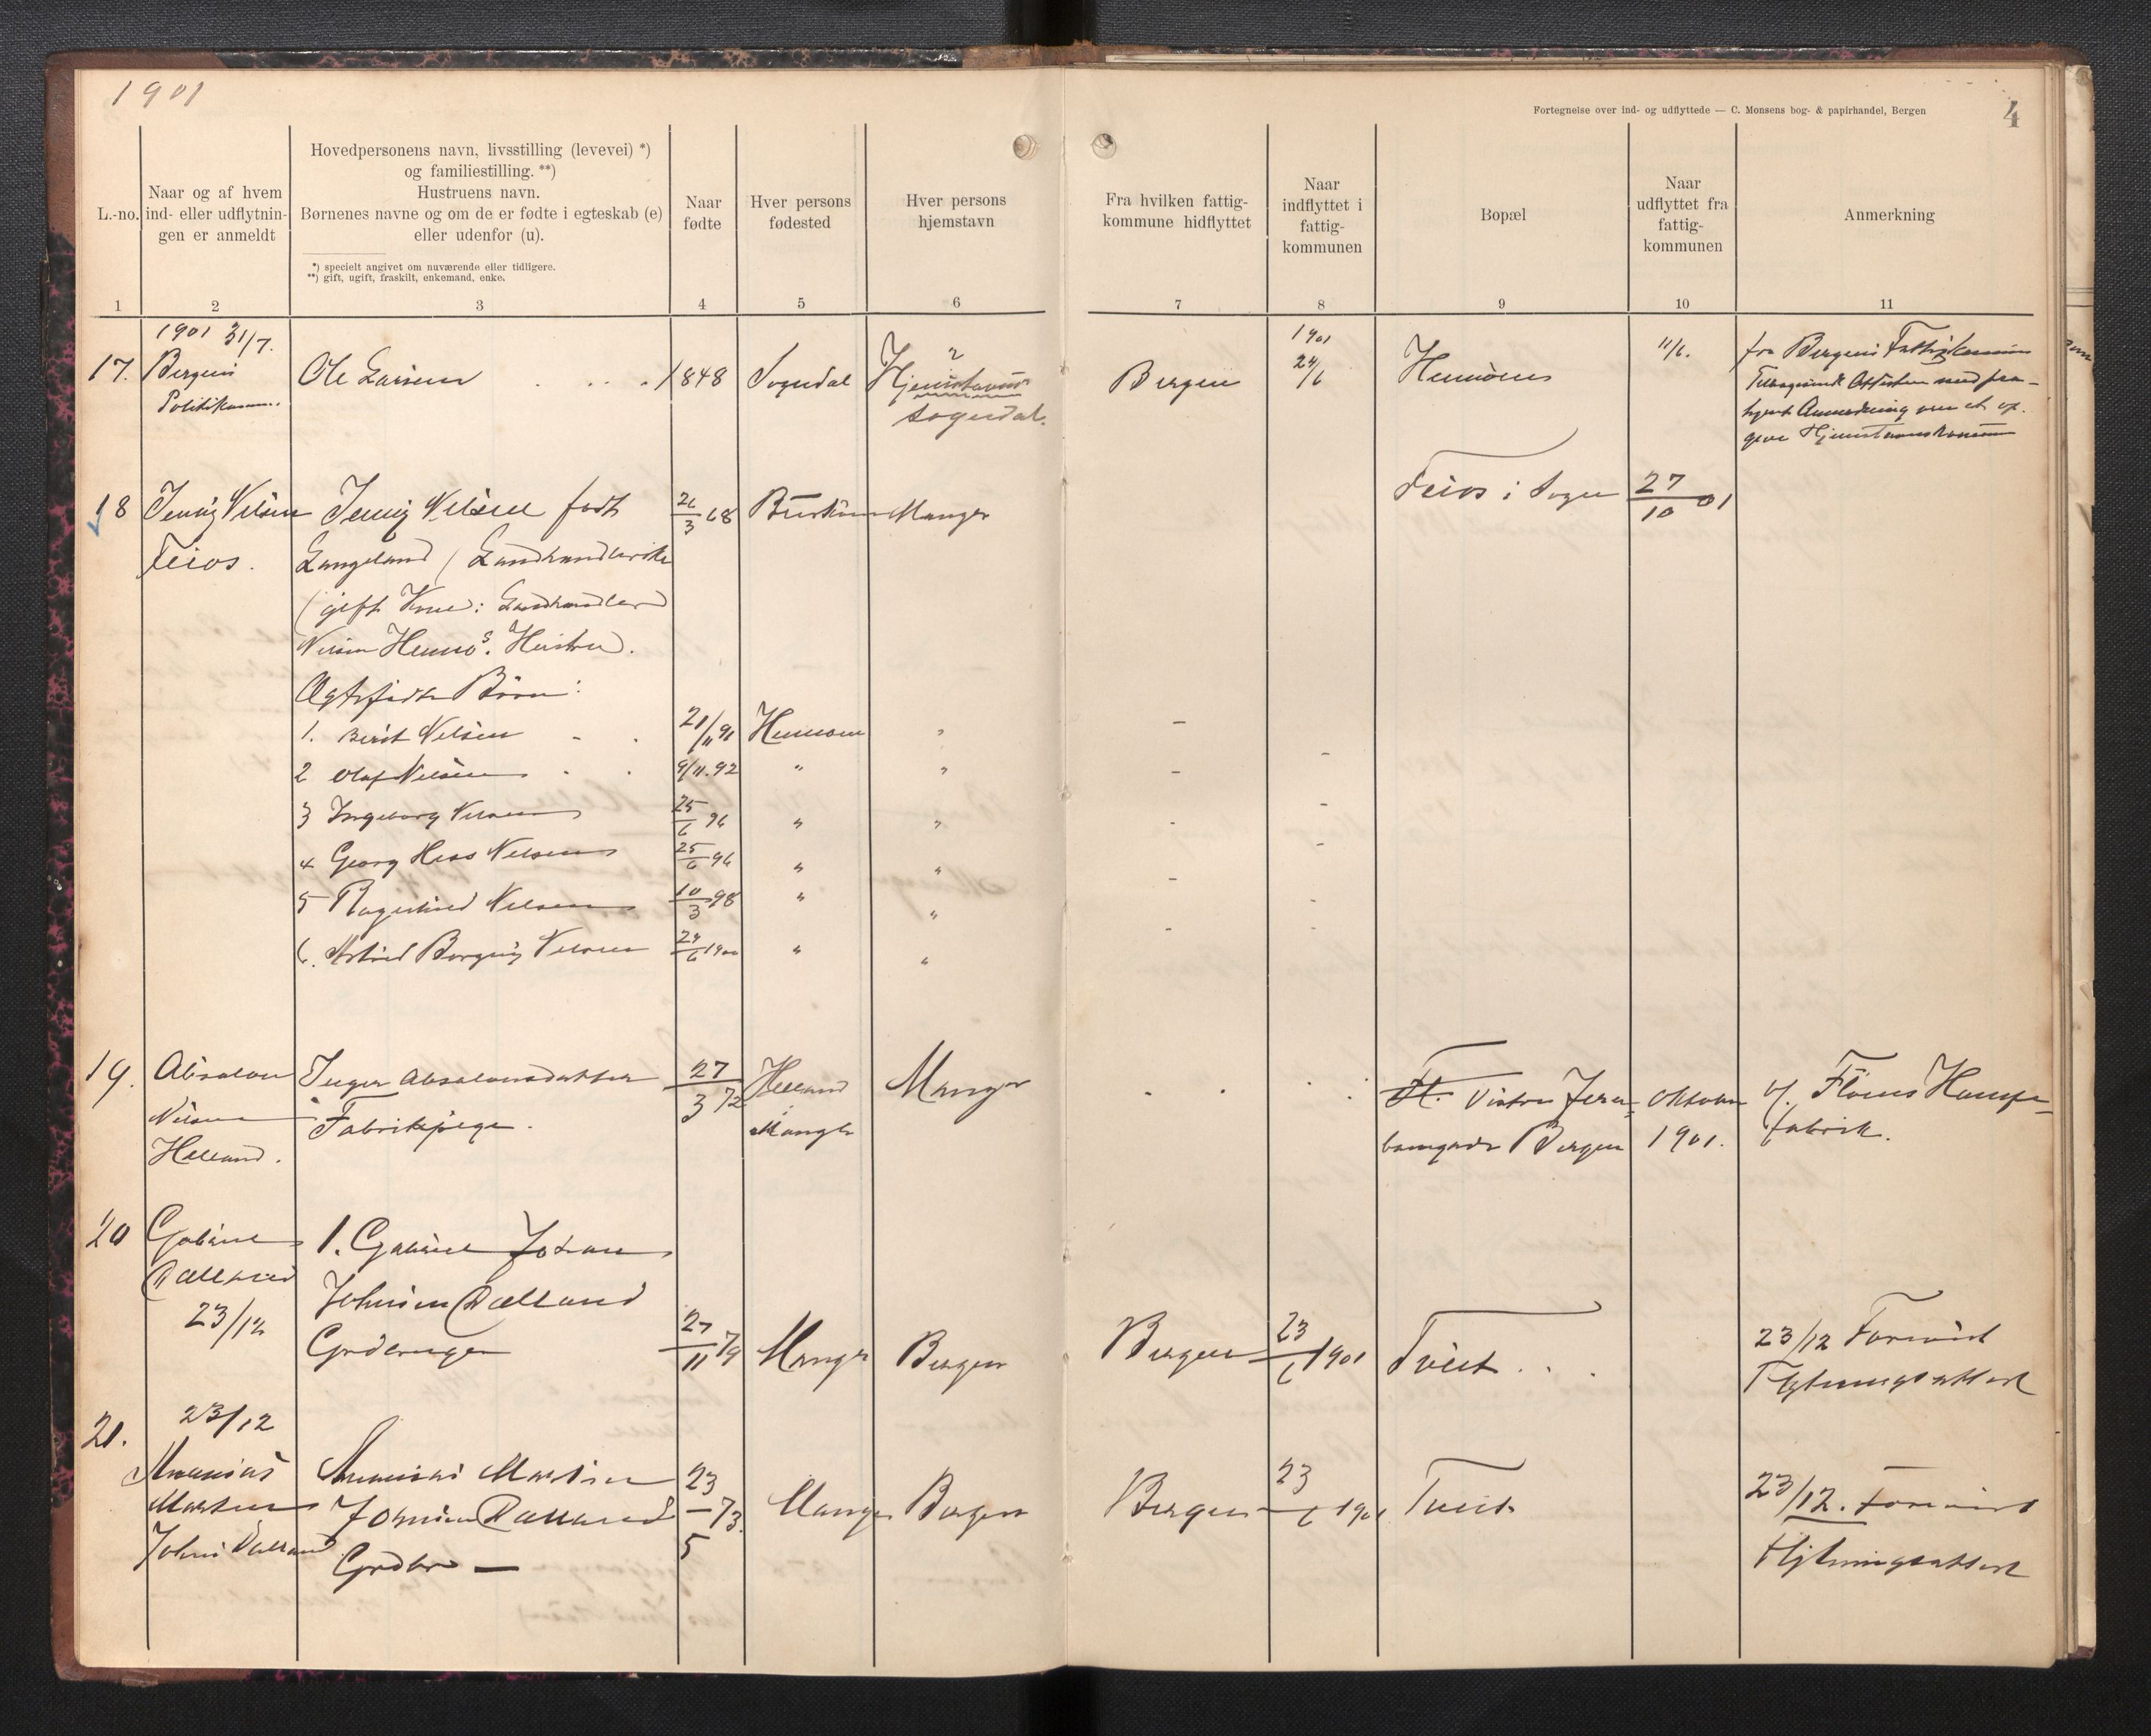 1901
Fortegnelse over ind- og udflyttede — C. Monsens bog- & papirhandel, Bergen
4
L.-no.
Naar og af hvem
ind- eller udflytnin-
gen er anmeldt
Hovedpersonens navn, livsstilling (levevei) *)
og familiestilling. **)
Hustruens navn.
Børnenes navne og om de er fødte i egteskab (e)
eller udenfor (u).
*) specielt angivet om nuværende eller tidligere.
**) gift, ugift, fraskilt, enkemand, enke.
Naar
fødte
Hver persons
fødested
Hver persons
hjemstavn
Fra hvilken fattig-
kommune hidflyttet
Naar
indflyttet i
fattig-
kommunen
Bopæl
Naar
udflyttet fra
fattig-
kommunen
Anmerkning
1 2 3 4 5 6 7 8 9 10 11
17.
1901 31/7.
Bergens
Ole Larsen
1848
Sogndal
?
Hjemstavns
Sogndal.
Bergen
1901
24/6
11/6.
fra Bergens Fattigkommune
18
Jenny Nilsen
Feios.
Jenny Nilsen født
Langeland / Landhandlerske
(gift Kone: Landhandler
Nilsen Hennøs Hustru).
Ægtefødte Børn:
26/3 68
Manger
Feios i Sogn
27/10 01
1. Berit Nilsen
21/11 91
"
-
2 Olaf Nilsen
9/11. 92
"
"
-
3 Ingeborg Nilsen
25/6 96
"
"
-
4 Georg Hess Nilsen
25/6 96
"
"
-
5 Ragnhild Nilsen
10/3 98
"
"
-
6. Astrid Borgny Nilsen
24/6 1900
"
"
19.
Absalon
Nilsen
Helland.
Inger Absalonsdatter
Fabrikpige.
27/3 72
Helland
i
Manger
Manger
Vistre Jern-
banegade Bergen
Oktober
1901.
v/. Fløens Hampe-
fabrik.
20
Gabriel
Dalland
23/12
1. Gabriel Johan
Johnsen Dalland
Gaardbruger
27/11 79
Manger
Bergen
Bergen
23/6 1901
Tveit
23/12 Forevist
Flytningsattest
21.
23/12
Ananias
Martin
Johns Dalland
Ananias Martin
Johnsen Dalland
23/5 73.
Manger
Bergen
Bergen
23/6 1901
Tveit
23/12. Forevist
Flytningsattest